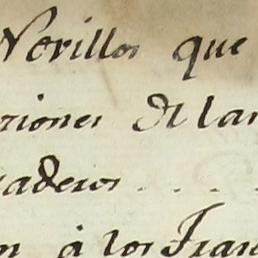 Novillos que
riones de las
aderos . . . .
en á los Fran